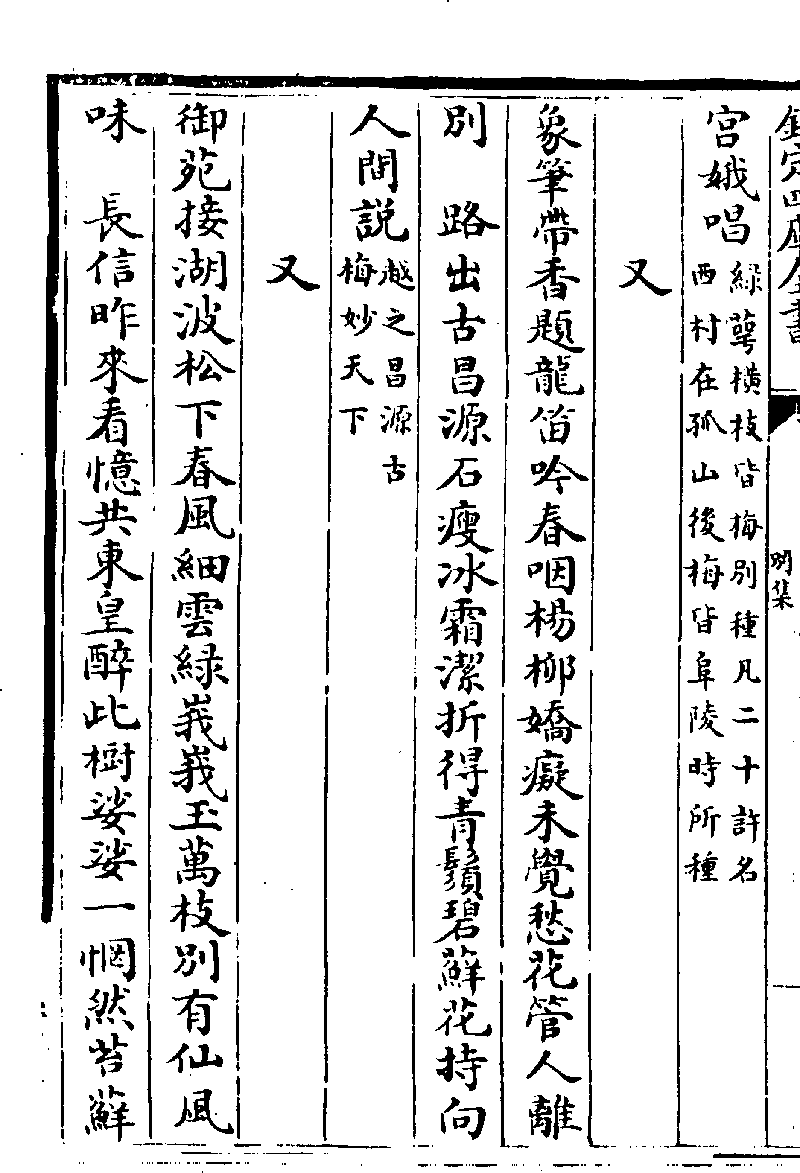 欽定四庫全書
別集
宮娥唱
綠萼橫枝皆梅別種凡二十許名
西村在孤山後梅皆阜陵時所種
又
象筆帶香題龍笛吟春咽楊柳嬌癡未覺愁花管人離
別　路出古昌源石瘦冰霜潔折得青鬚碧蘚花持向
人間說
越之昌源古
梅妙天下
又
御苑接湖波松下春風細雲綠峩峩玉萬枝別有仙風
味　長信昨來看憶共東皇醉此樹娑娑一惘然苔蘚